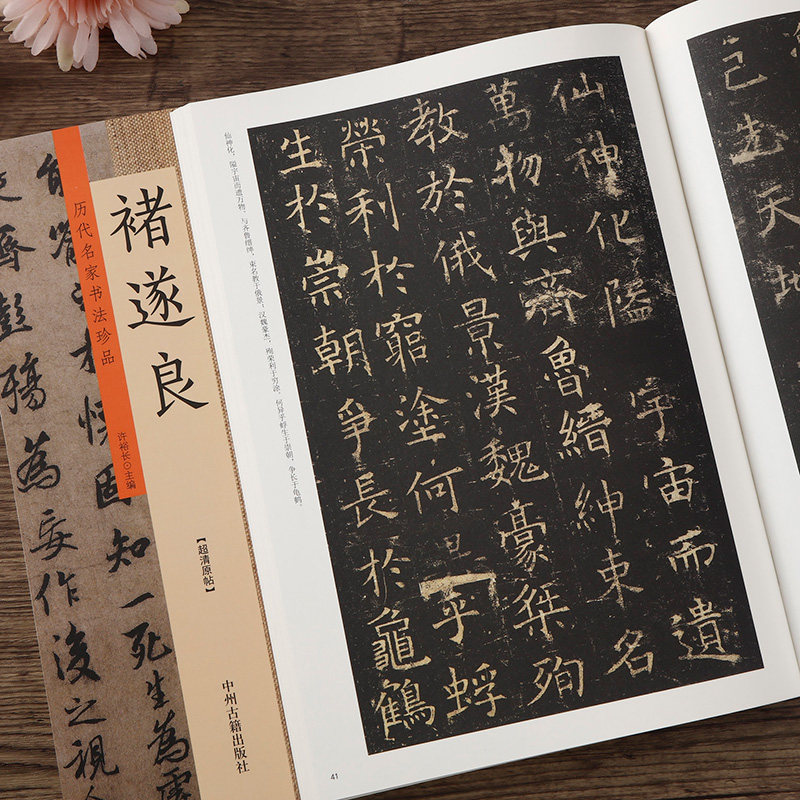 己先天地
仙神化隘宇宙而遺
萬物與齊魯縉紳束名
教於俄景漢魏豪桀殉
榮利於窮塗何乎蜉
生於崇朝爭長於龜鶴
仙神化；隘宇宙而遗万物。与齐鲁缙绅，束名教于俄景；汉魏豪杰，殉荣利于穷涂，何异乎蜉生于崇朝，争长于龟鹤。
41
褚遂良
历代名家书法珍品
许裕长◎主编
【超清原帖】
中州古籍出版社
固知一死生為虛
齊彭殤為妄作後之視人